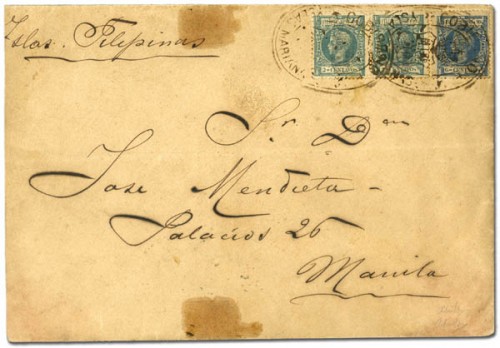 Islas Filipinas
Sr. Don
Jose Mendieta
Palacios 26
Manila